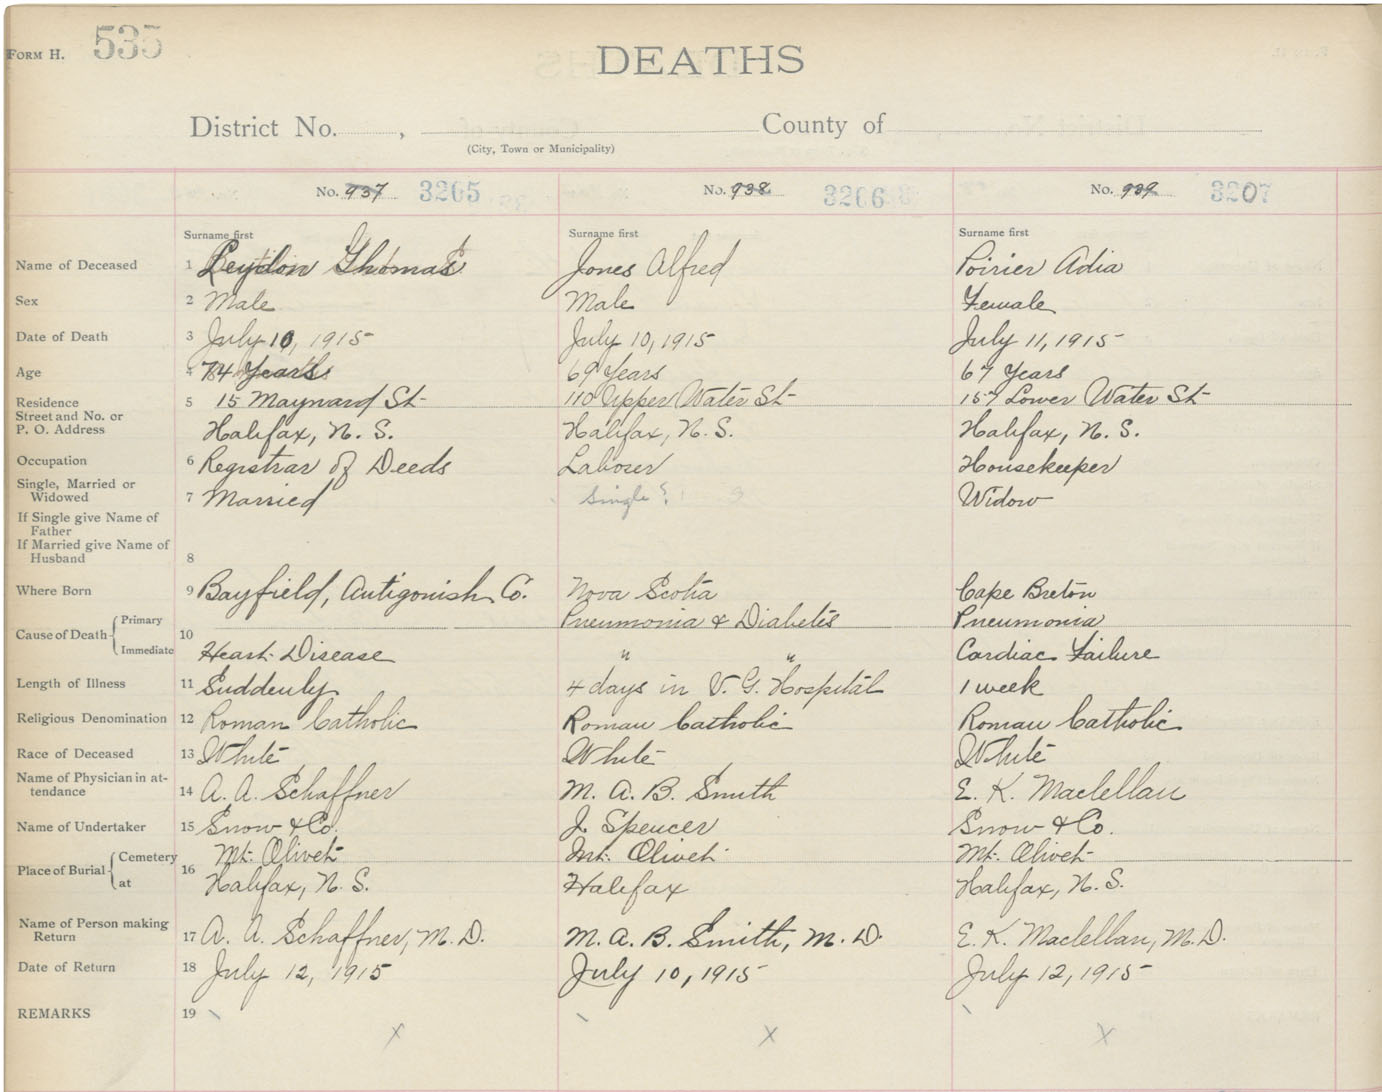 FORM H. 535
DEATHS
District No. , County of
(City, Town or Municipality)
No. 937 3205 No. 938 3206 No. 939 3207
Surname first Surname first Surname first
Name of Deceased 1 Leydon Thomas Jones Alfred Poirier Adia
Sex 2 Male Male Female
Date of Death 3 July 10, 1915 July 10, 1915 July 11, 1915
Age 4 74 Years 69 Years 67 Years
Residence 5 15 Maynard St 110 Upper Water St 157 Lower Water St
Street and No. or
P. O. Address Halifax, N. S. Halifax, N. S. Halifax, N. S.
Occupation 6 Registrar of Deeds Laborer Housekeeper
Single, Married or
Widowed 7 Married Single ? Widow
If Single give Name of
Father
If Married give Name of
Husband 8
Where Born 9 Bayfield, Antigonish Co. Nova Scotia Cape Breton
Cause of Death Primary 10 Pneumonia & Diabetis Pneumonia
Immediate Heart Disease " " Cardiac Failure
Length of Illness 11 Suddenly 4 days in V. G. Hospital 1 week
Religious Denomination 12 Roman Catholic Roman Catholic Roman Catholic
Race of Deceased 13 White White White
Name of Physician in at-
tendance 14 A. A. Schaffner M. A. B. Smith E. K. Maclellan
Name of Undertaker 15 Snow & Co. J. Spencer Snow & Co.
Place of Burial Cemetery 16 Mt. Olivet Mt. Olivet Mt. Olivet
at Halifax, N. S. Halifax Halifax, N. S.
Name of Person making
Return 17 A. A. Schaffner, M. D. M. A. B. Smith, M. D. E. K. Maclellan, M. D.
Date of Return 18 July 12, 1915 July 10, 1915 July 12, 1915
REMARKS 19
X X X